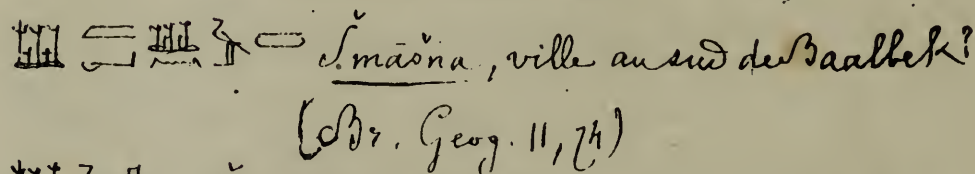 Š.māšna, ville au sud de Baalbek?
(Br. Geog. II, 74)